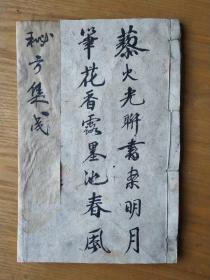 藜火光聯書案明月
筆花香露墨池春風
秘方集成